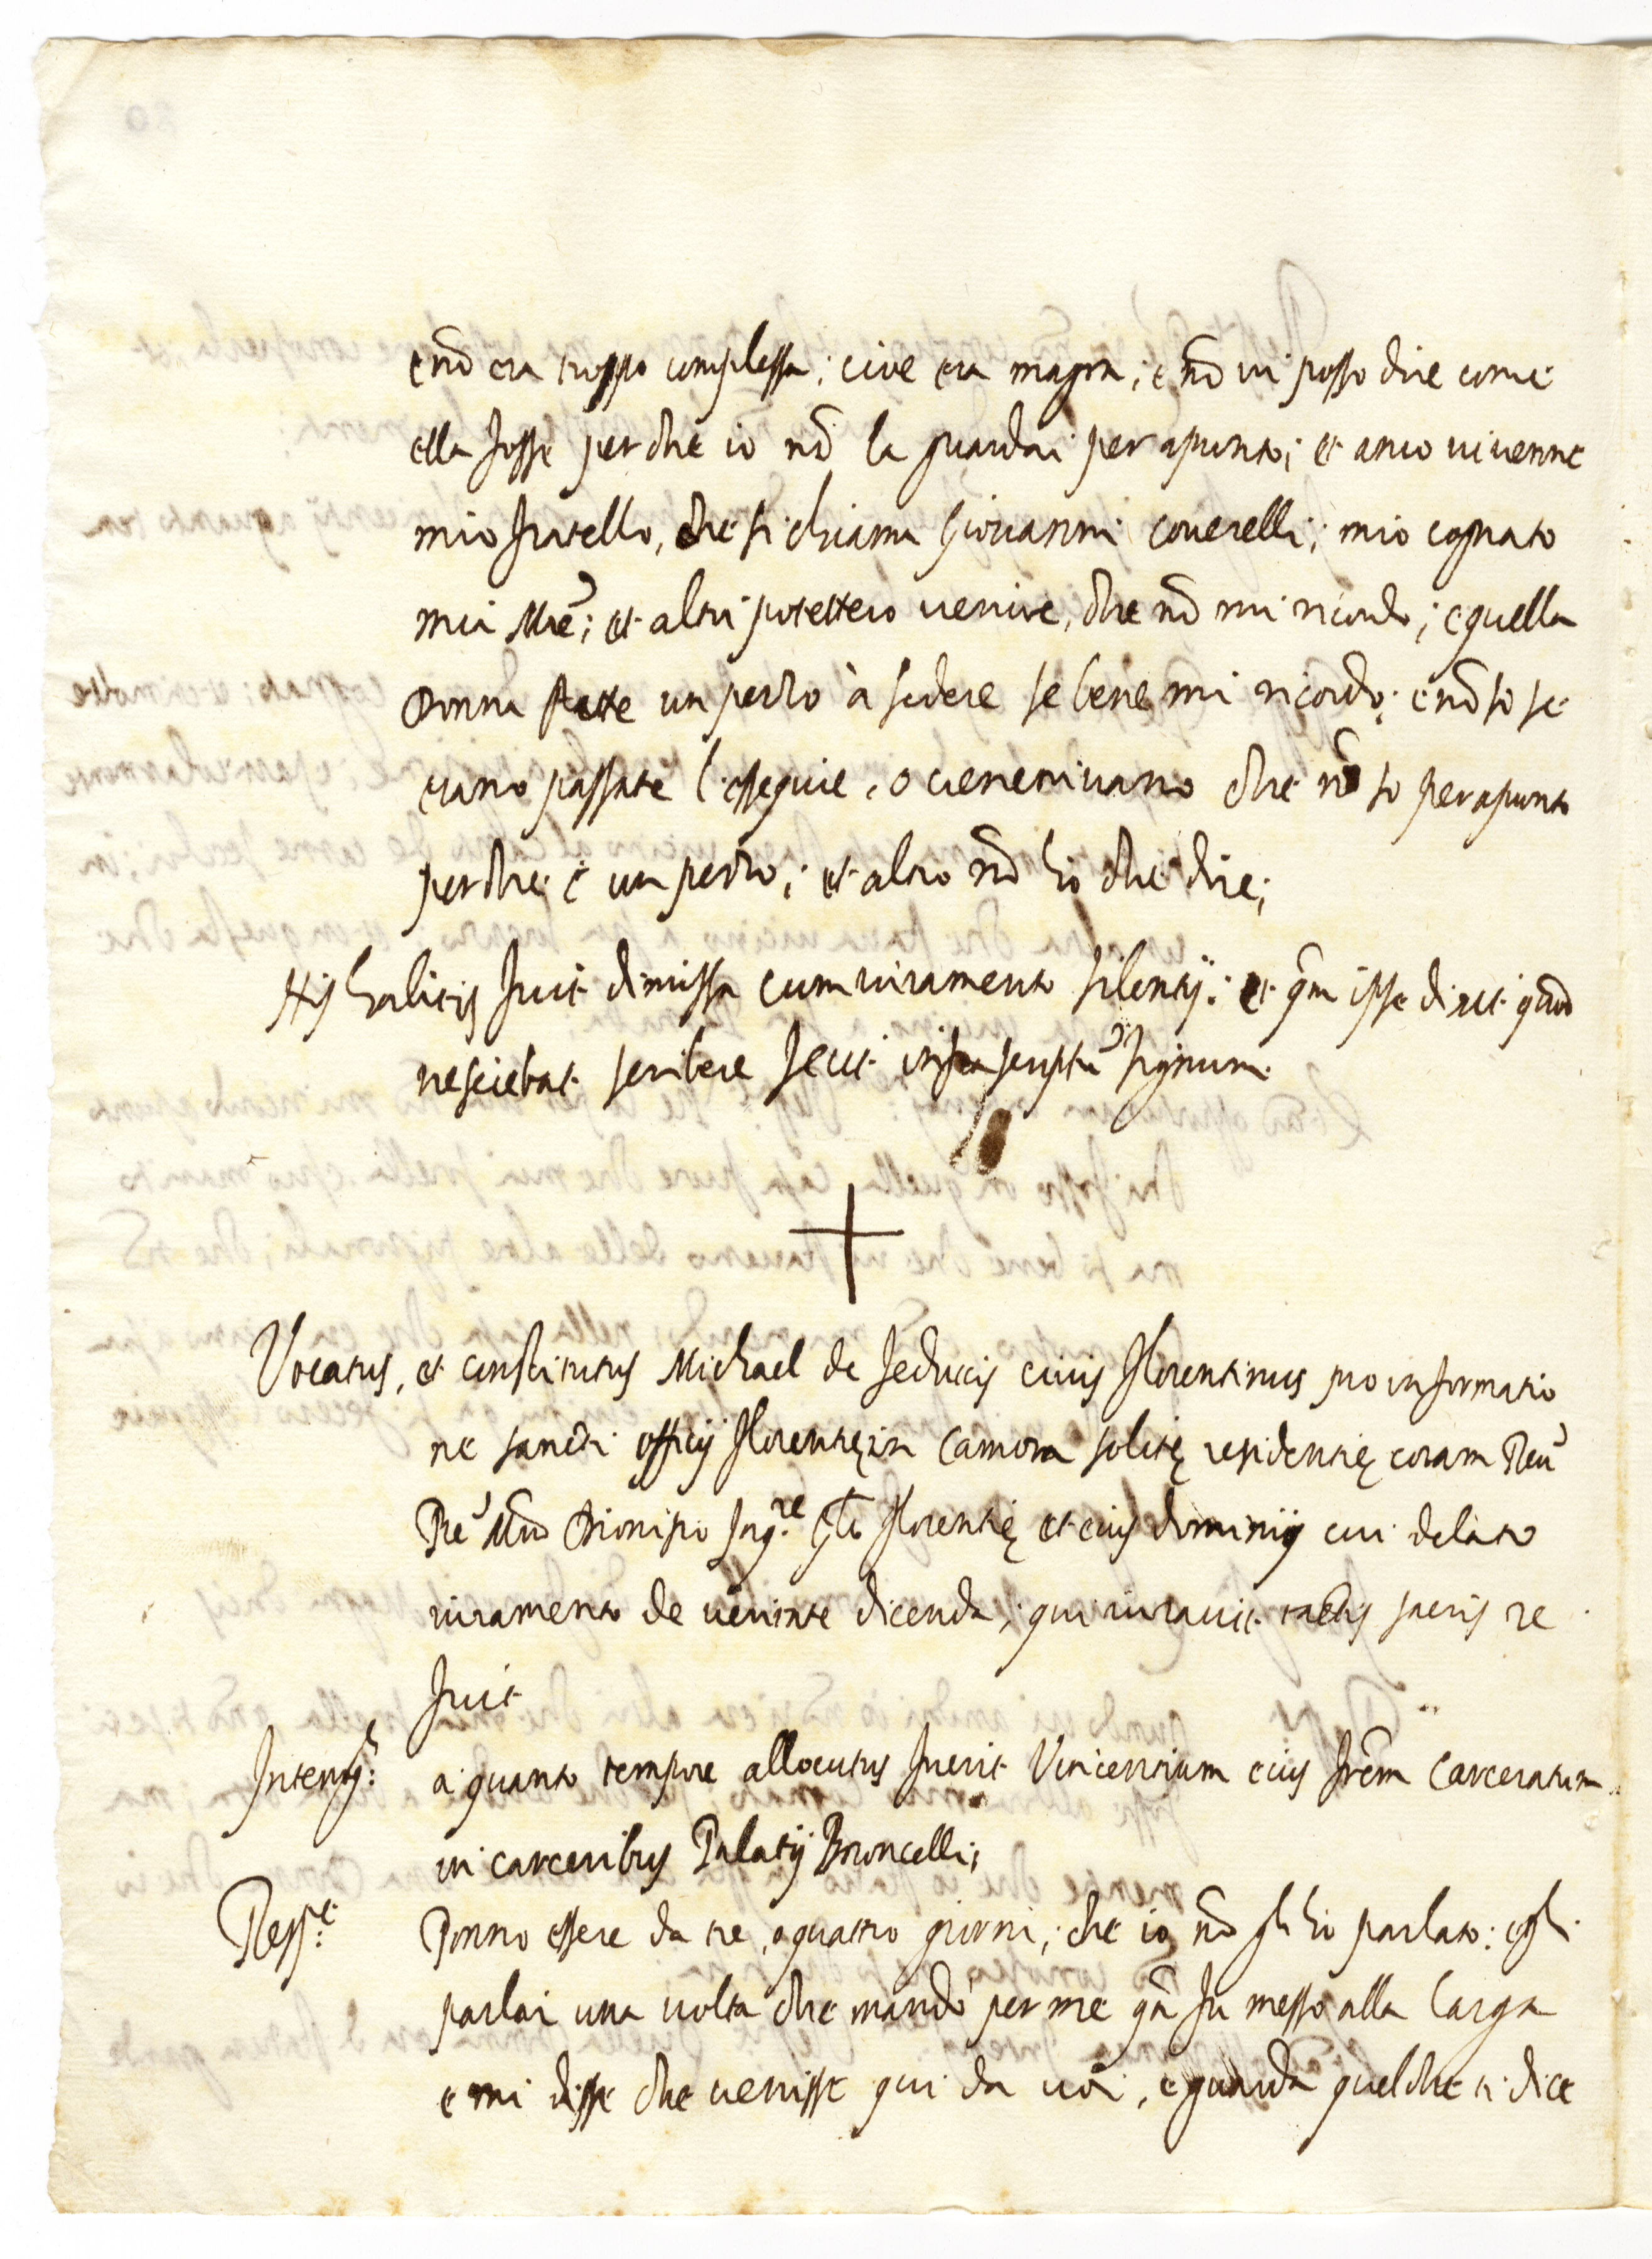 e nō era troppo complessa; cioe era magra; e nō vi posso dire come
ella fosse perche io nō la guardai per apunto; et anco vi venne
mio fratello, che si chiama Giovanni coverelli; mio cognato
mia Mrē; et altri potettero venire, che nō mi ricordo; e quella
Donna stette un pezzo à sedere se bene mi ricordo; e nō so se
erano passate l'esseguie, o venenivano che nō so per apunto
perche è un pezzo; et altro nō hò che dire;
His habitis fuit dimissa cum iuramento silentij: et qm̄ ipse dixit quod
nesciebat scribere fecit infrascriptū signum
Vocatus, et constitutus Michael de seduccis civis Florentinus pro informatio
ne sancti officij Florentię in Camera solitę residentię coram Reu
Pre Mro Dionisio Inq.re Gli Florentię et eius dominij cui delato
iuramento de veritate dicenda; qui iuravit tactis sacris re
fuit
Interrog.s a quanto tempore allocutus fuerit Vincentium eius frēm Carceratum
in carceribus Palatij Broncelli;
Resp.t Ponno essere da tre, o quattro giorni; che io nō gli hò parlato: e gli
parlai una volta che mandò per me qn̄ fu messo alla larga
e mi disse che venisse qui da voi, e guarda quel che ti dice